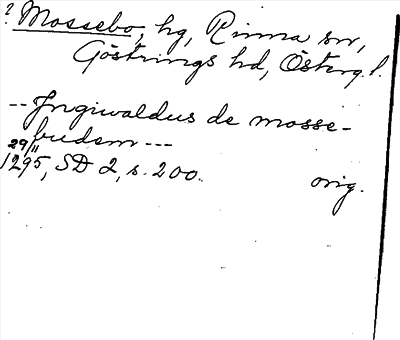 ? Mossebo, hg, Rinna sn,
Göstrings hd, Österg. l.
-- Ingiwaldus de mosse-
budem ---
29/11
1295, SD 2, s. 200.
orig.